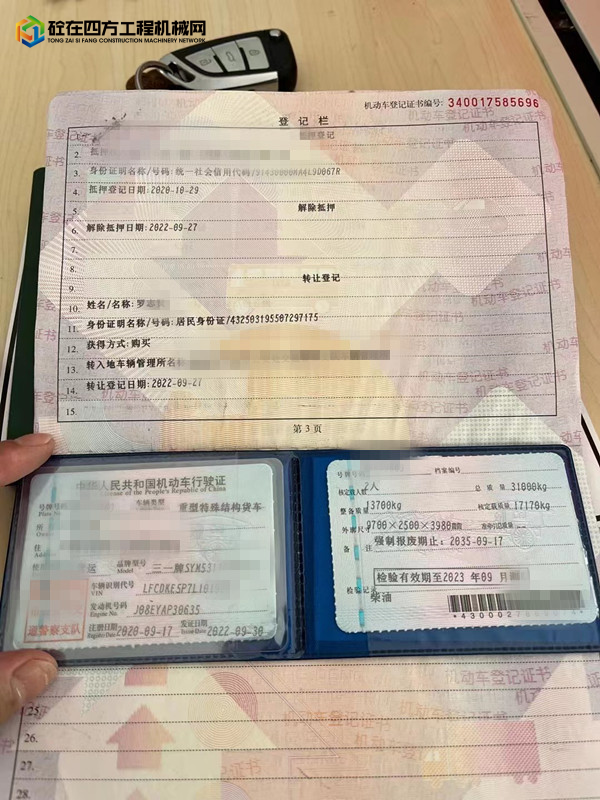 砼在四方工程机械网
TONG ZAI SI FANG CONSTRUCTION MACHINERY NETWORK
机动车登记证书编号: 340017585696
登 记 栏
抵押登记
2.
3. 身份证明名称/号码:统一社会信用代码/91430000MA4L9D067R
4. 抵押登记日期:2020-10-29
5. 解除抵押
6. 解除抵押日期:2022-09-27
7.
8. 转让登记
9.
10. 姓名/名称:罗志
11. 身份证明名称/号码:居民身份证/432503195507297175
12. 获得方式:购买
13. 转入地车辆管理所名
14. 转让登记日期:2022-09-27
15.
第 3 页
中华人民共和国机动车行驶证
License of the People's Republic of China
车辆类型 重型特殊结构货车
品牌型号 三一牌SYM531
Model
车辆识别代号 LFCDKESP7L10
VIN
发动机号码 J08EYAP30635
Engine No.
注册日期 2020-09-17 发证日期 2022-09-30
Register Date Issue Date
通警察支队
档案编号
2人 总 质 量 31800kg
整备质量 13700kg 核定载质量 17170kg
外廓尺寸 9700×2500×3980
备 注 强制报废期止: 2035-09-17
检验有效期至2023 年09 月
检验记录
柴油
25.
26.
27.
28.